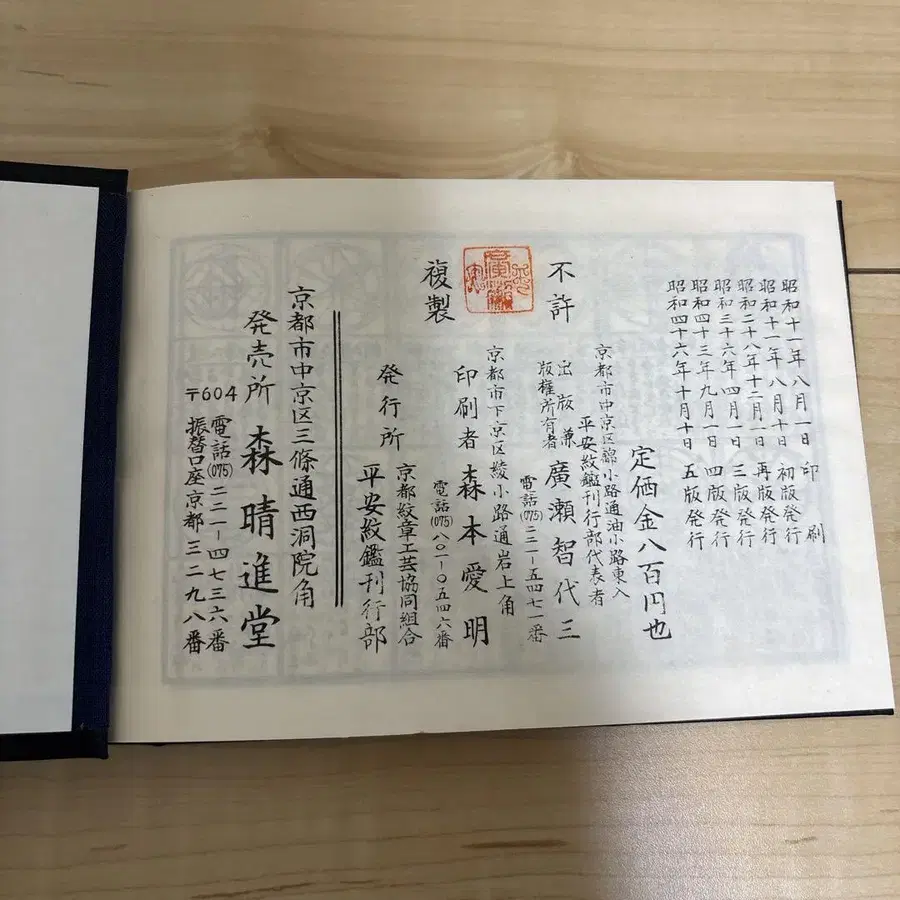 昭和十一年八月一日 印刷
昭和十一年八月十日 初版発行
昭和二十八年十二月一日 再版発行
昭和三十六年四月一日 三版発行
昭和四十三年九月一日 四版発行
昭和四十六年十月十日 五版発行
定価金八百円也
不許
複製
京都市中京区錦小路通油小路東入
平安紋鑑刊行部代表者
出版兼
版権所有者
廣瀬智代三
電話(075)二二一-五四七一番
京都市下京区綾小路通岩上角
印刷者 森本愛明
電話(075)八〇一-〇五四六番
発行所
京都紋章工芸協同組合
平安紋鑑刊行部
京都市中京区三條通西洞院角
発売所 森晴進堂
〒604
電話(075)二二一-四七三六番
振替口座京都三二九八番